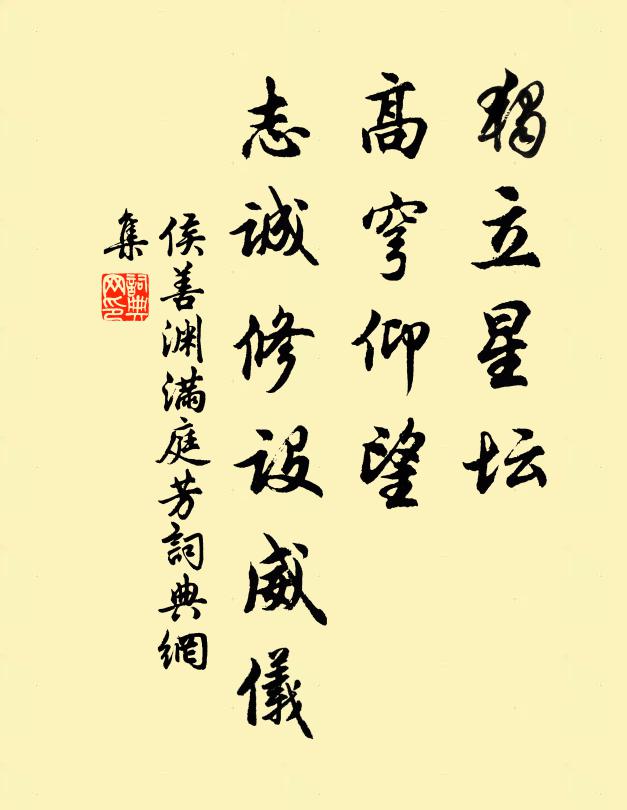 獨立星坛
高穹仰望
志誠修設威儀
侯善渊满庭芳詞典網
集
詞典
网印